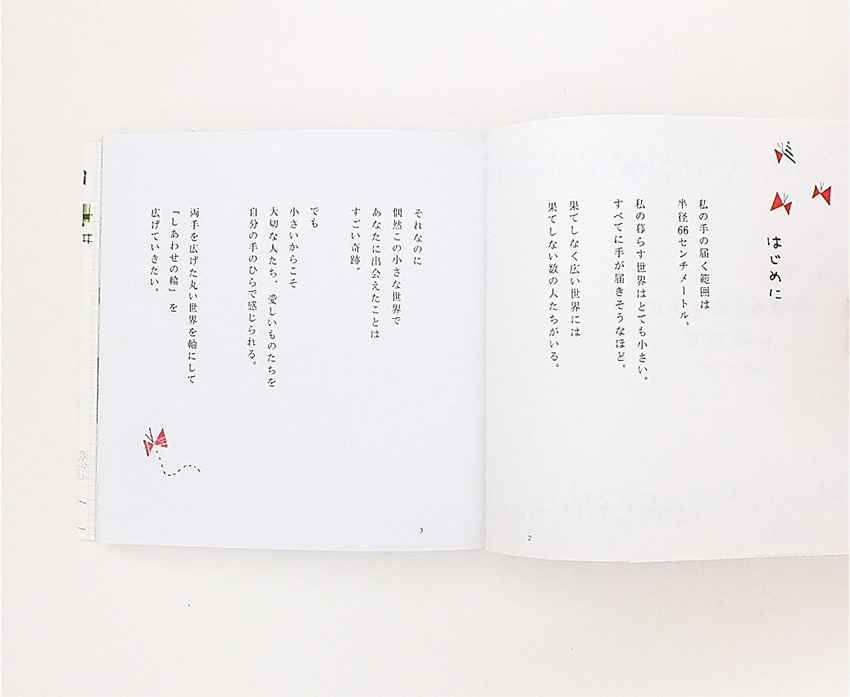 はじめに
私の手の届く範囲は
半径66センチメートル。
私の暮らす世界はとても小さい。
すべてに手が届きそうなほど。
果てしなく広い世界には
果てしない数の人たちがいる。
2
それなのに
偶然この小さな世界で
あなたに出会えたことは
すごい奇跡。
でも
小さいからこそ
大切な人たち、愛しいものたちを
自分の手のひらで感じられる。
両手を広げた丸い世界を軸にして
「しあわせの輪」を
広げていきたい。
3